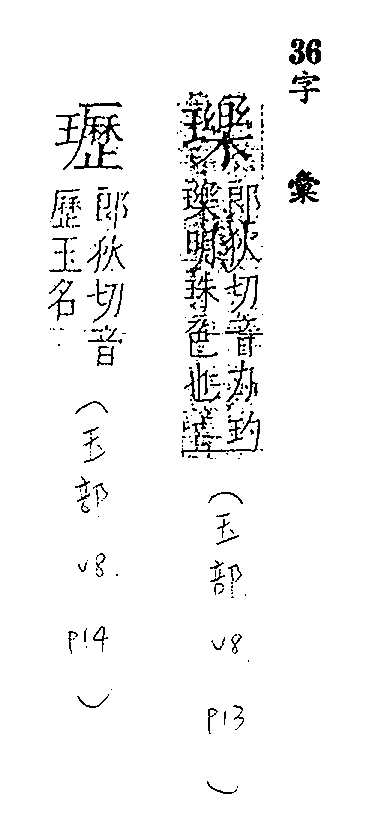 36字彙
瓅
郎狄切音力玓
瓅明珠色也
（玉部 v8. p13）
瓑
郎狄切音
歷玉名
（玉部 v8. p14）